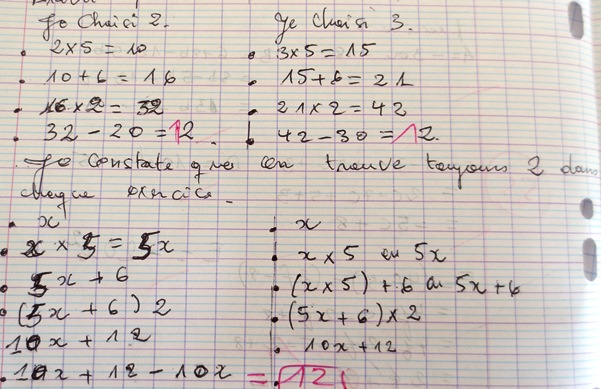 Je choisi 2.
2 x 5 = 10
10 + 6 = 16
16 x 2 = 32
32 - 20 = 12.
Je choisi 3.
3 x 5 = 15
15 + 6 = 21
21 x 2 = 42
42 - 30 = 12.
Je constate que on trouve toujours 2 dans
chaque exercice.
x
x x 5 = 5x
5x + 6
(5x + 6) 2
10x + 12
10x + 12 - 10x = 12
x
x x 5 ou 5x
(x x 5) + 6 ou 5x + 6
(5x + 6) x 2
10x + 12